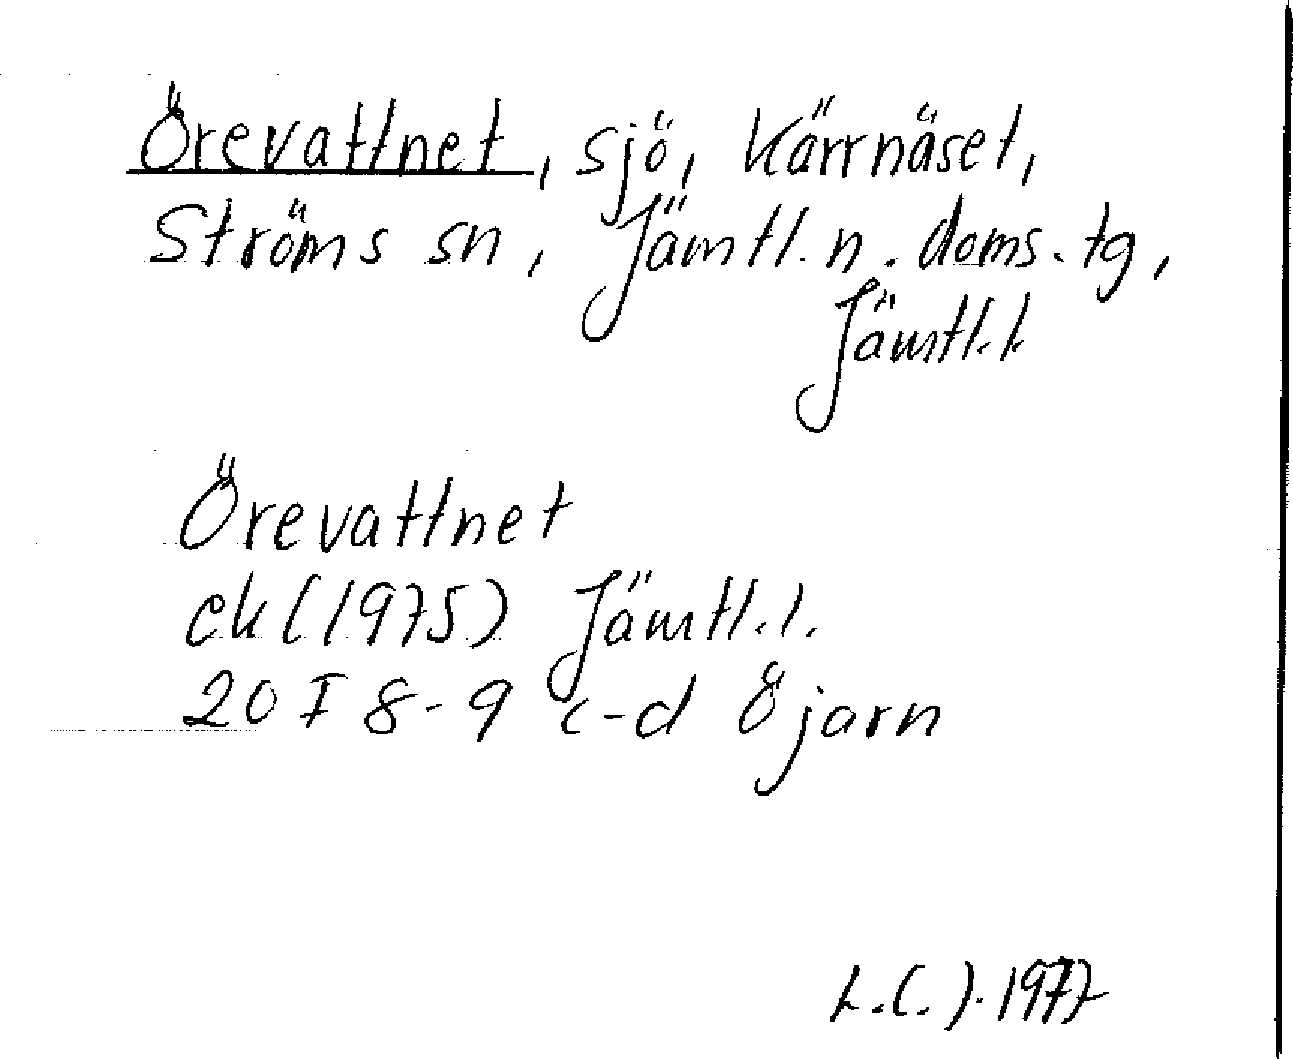 Örevattnet, sjö, Kärrnäset,
Ströms sn, Jämtl. n. doms. tg,
Jämtl.l.
Örevattnet
ek (1975) Jämtl.l.
20 I 8-9 c-d Öjarn
L.C.J. 1977